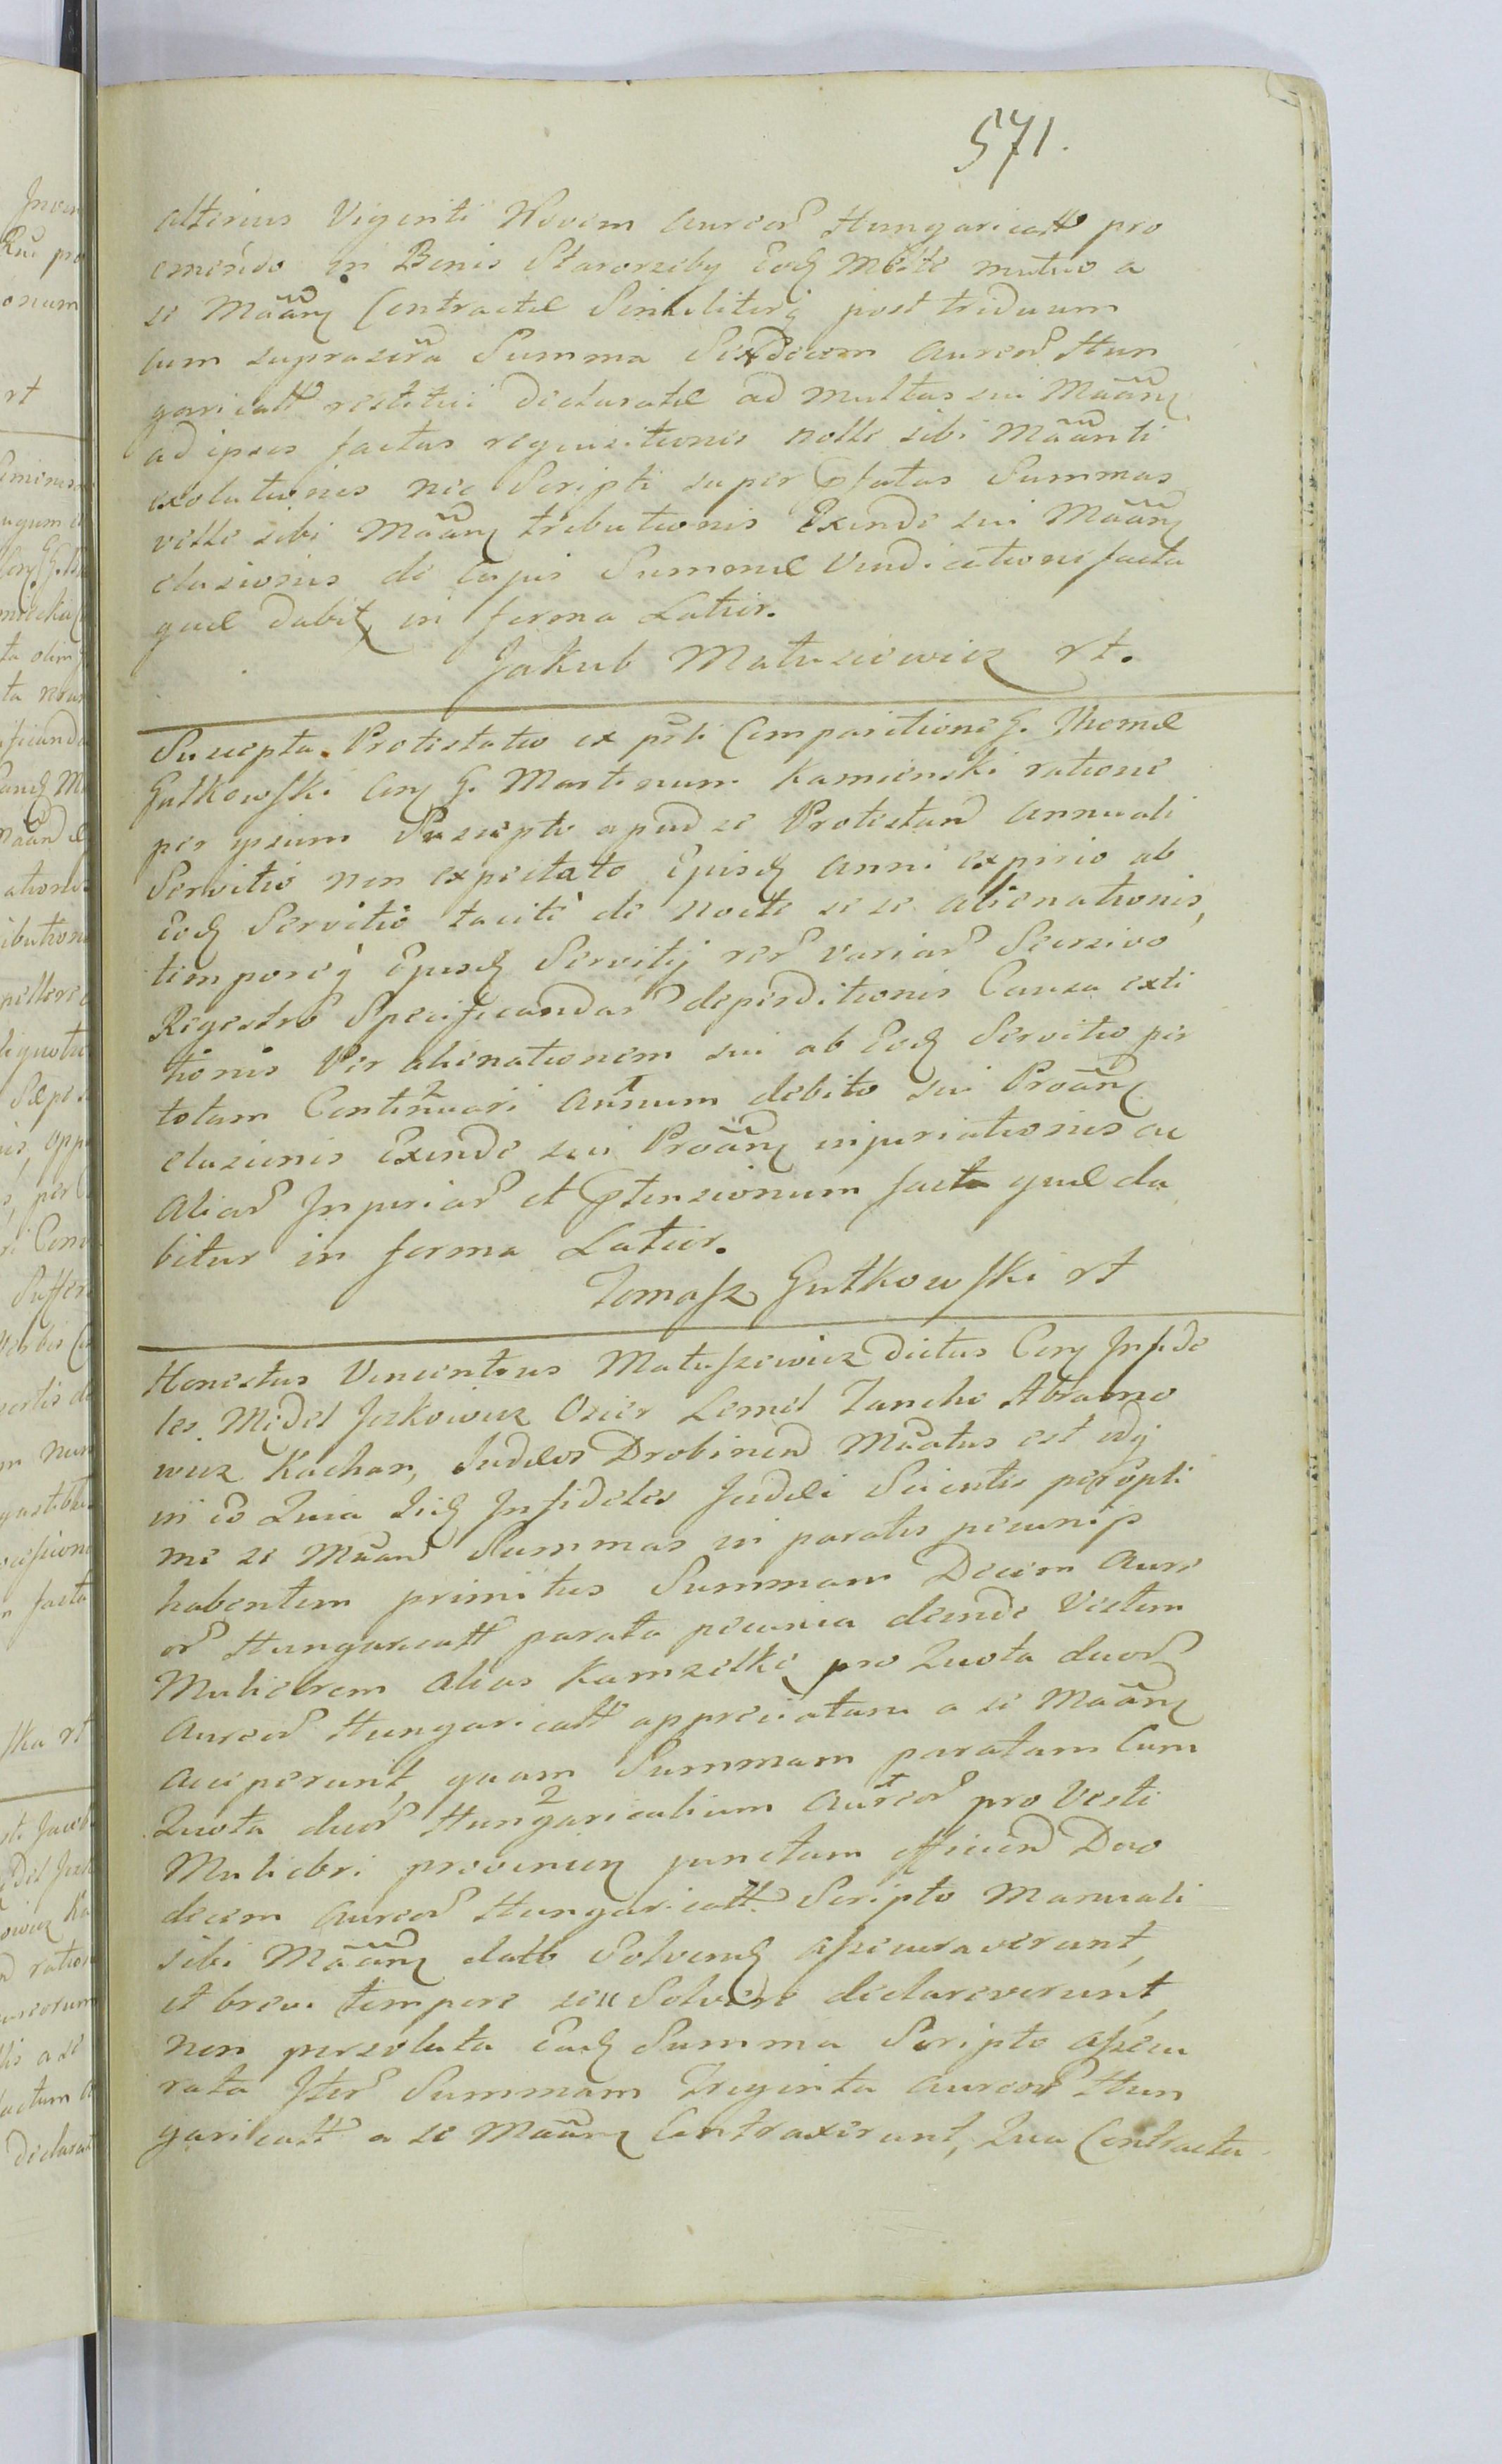 571.
alterius Viginti Novem Aureor Hungaricall pro
emendo in Bonis Starorzeby Eodq Melle mutuo a
se Mãanq Contractæ Similiterq post triduum
cum suprascra Summa Sexdecem Aureor Hun
garicall restitui declaratæ ad multas sui Mãanq
ad ipsos factas requisitionis nolle sibi Mãanti
exolutionis nec Scripti super Pfatas Summas
velle sibi Mãanq tributionis Exinde sui Mãanq
elusionis de Cujus Summæ Vindicatione facta
quæ dabitq in forma Latior.
Jakub Matusiewicz rt.
Suscepta Protestatio ex pñti Comparitione G. Thomæ
Gutkowski Conq G. Martinum Kamienski ratione
per ipsum Suscepto apud se Protestand Annuali
Servitio non expectato Ejusdq Anni expirio ab
Eodq Servitio tacitè de nocte se se abienationis,
temporeq Ejusdq Servitij rer variar Seorsivo
Regestro Specificandar deperditionis Causa exti
tionis Per alienationem sui ab Eodq Servitio per
totum Continuari Annum debito sui Proãnq
elusionis Exinde sui Proãnq injuriationis ac
Aliar Injuriar et Ptensionum facta quæ da
bitur in forma Latior.
Tomasz Gutkowski rt
Honestus Vincentius Matuszewicz Dictus Conq Infide
les Mędel Joskowicz Osier Lemel Zanche Abramo
wicz Kachan, Judæos Drobinen Mãatus est idq
in eo Quia Iidq Infideles Judæi Scientes peropti
me se Mãand Summas in paratis pecunijs
habentem primitus Summam Decem Aure
or Hungaricall parata pecunia deinde Vestem
Muliebrem alias Kamzelkę pro Quota duor
Aureor Hungaricall appreciatam a se Mãanq
Acceperunt, quam Summam paratam Cum
Quota duor Hungaricalium Aureor pro Vesti
Muliebri provenien junctam efficien Duo
decem Aureor Hungaricall Scripto Manuali
sibi Mãanq dato Solvendq assecuraverunt,
et brevi tempore seu Solvere declaraverunt,
non persoluta Eadq Summa Scripto assecu
rata Iter Summam Triginta Aureor Hun
garicall a se Mãanq Contraxerunt, Qua Contracta